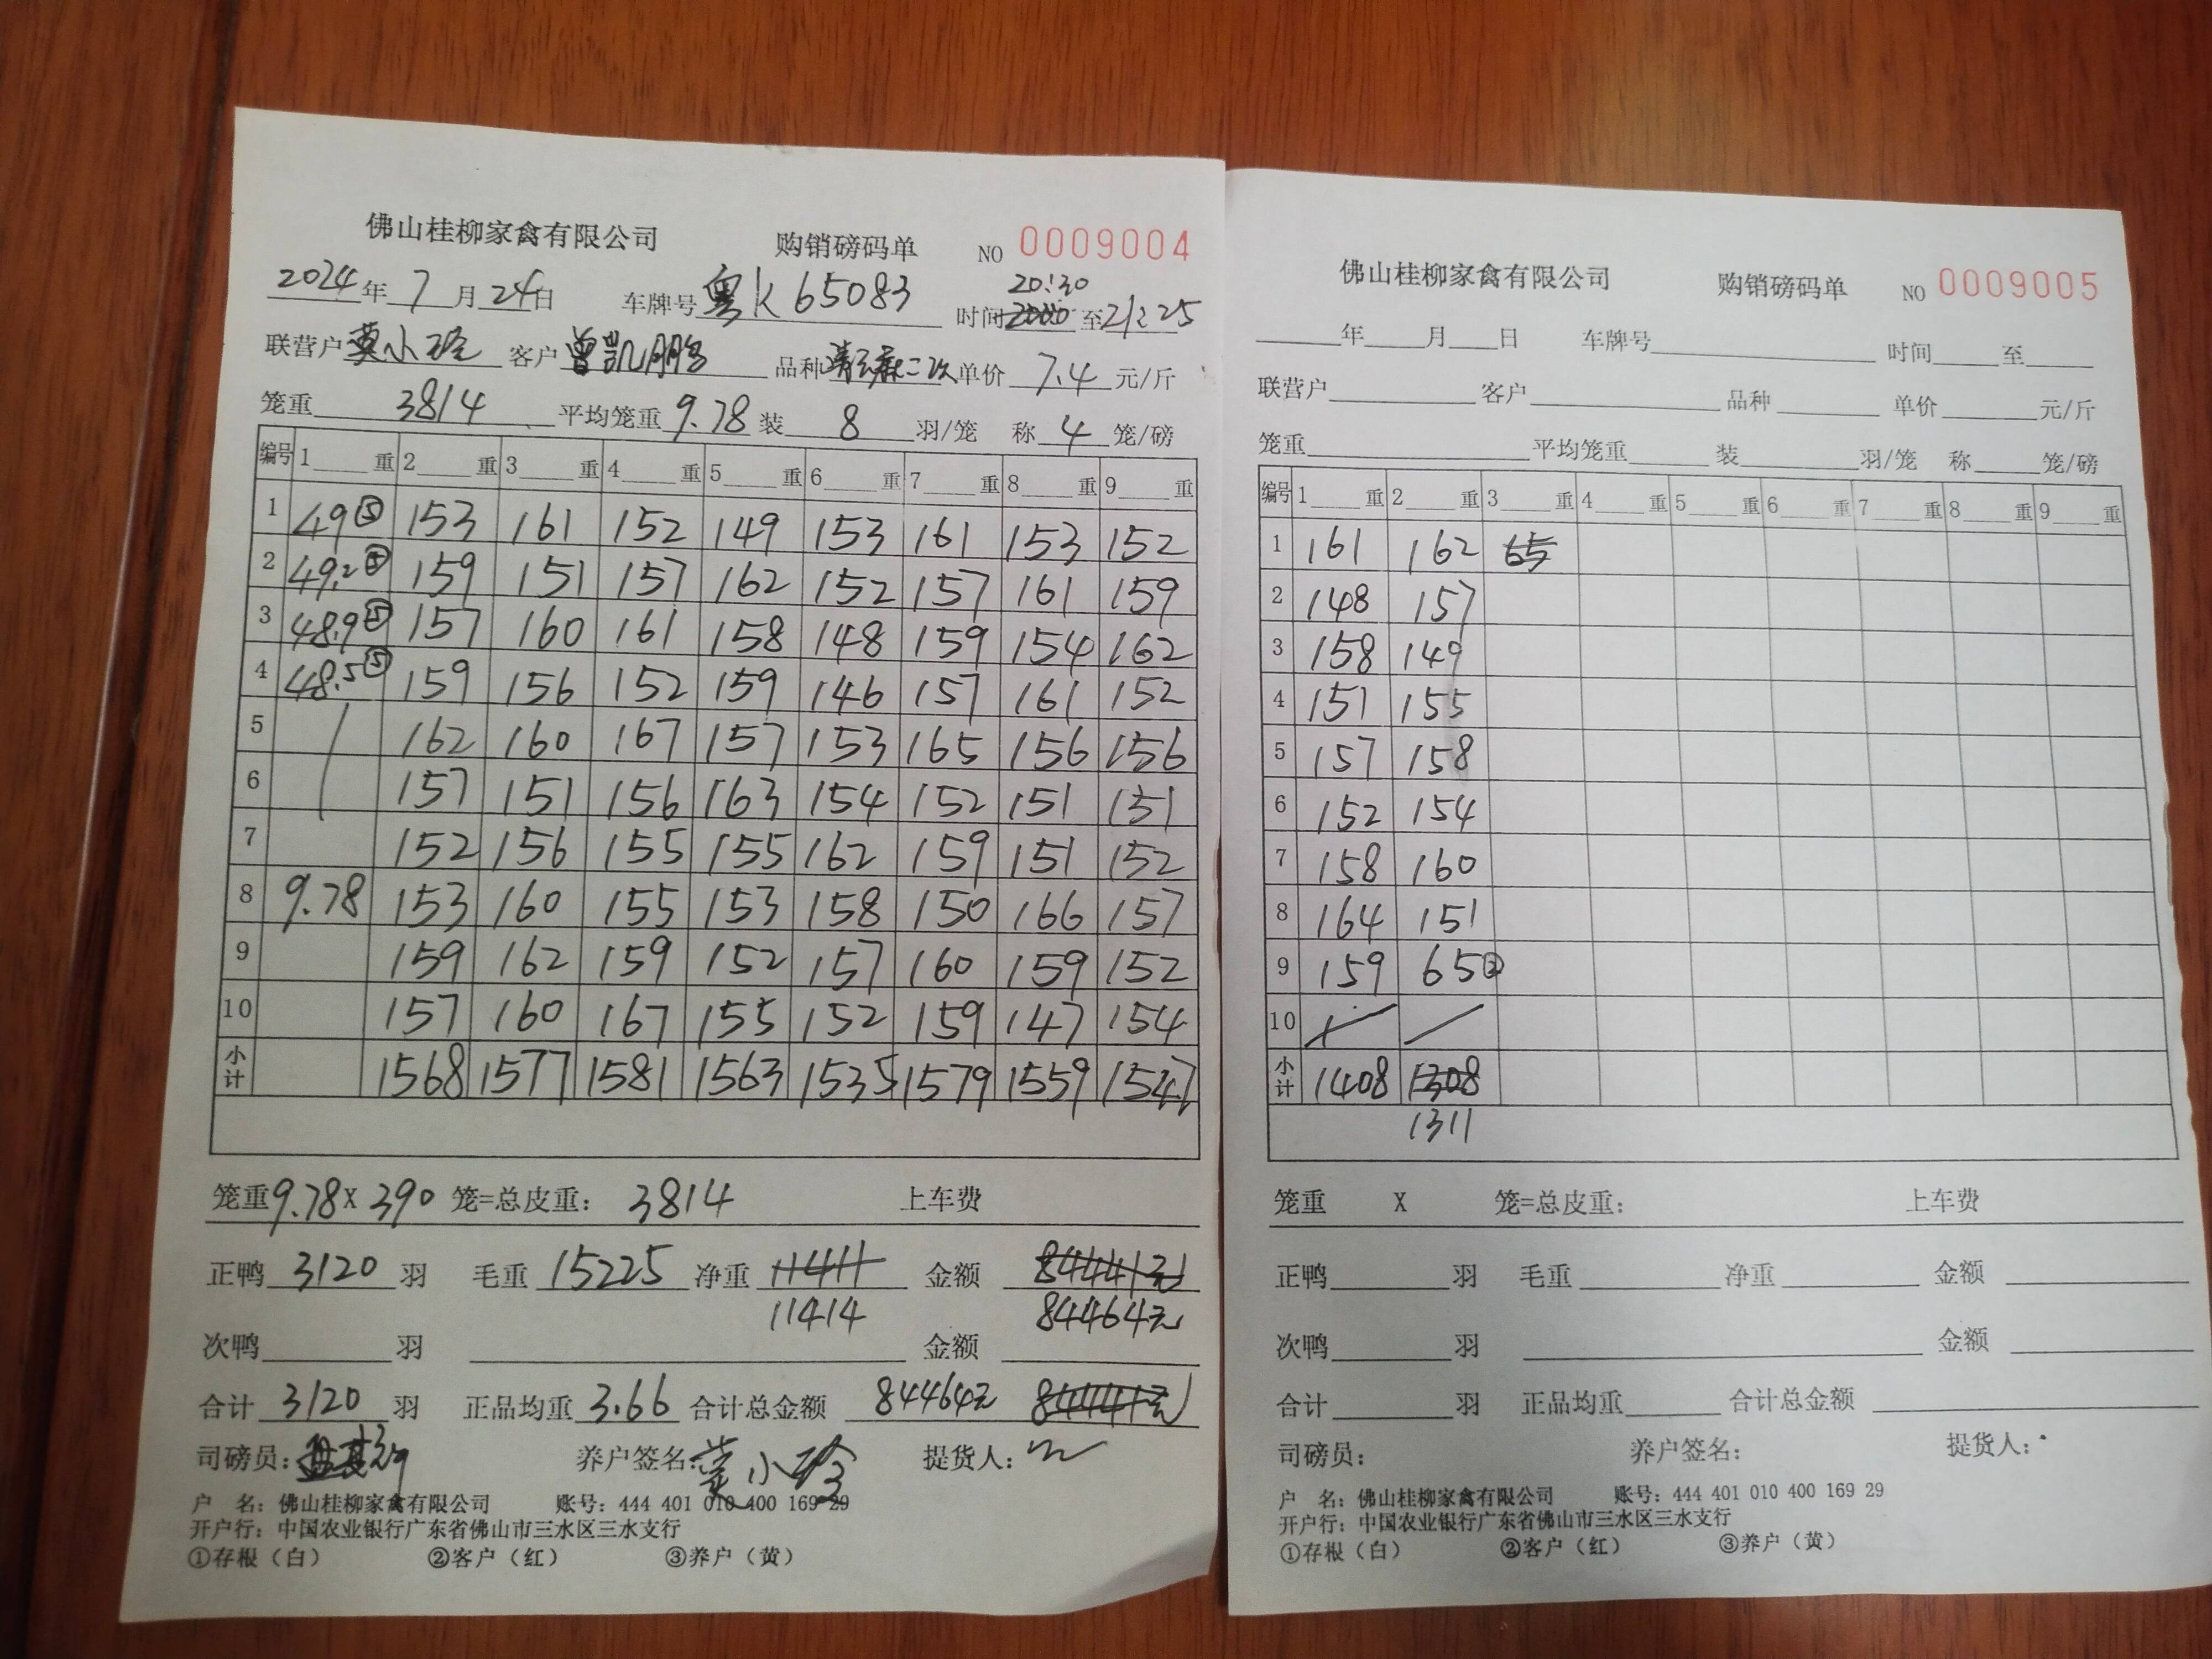 佛山桂柳家禽有限公司 购销磅码单 NO 0009004
20:30
2024年 7 月 24日 车牌号 粤K65083 时间 2000 至 21:25
联营户 莫小玲 客户 曾凯鹏 品种 二次 单价 7.4 元/斤
笼重 3814 平均笼重 9.78 装 8 羽/笼 称 4 笼/磅
编号 1 重 2 重 3 重 4 重 5 重 6 重 7 重 8 重 9 重
1 49⑤ 153 161 152 149 153 161 153 152
2 49.2⑤ 159 151 157 162 152 157 161 159
3 48.9⑤ 157 160 161 158 148 159 154 162
4 48.5⑤ 159 156 152 159 146 157 161 152
5 162 160 167 157 153 165 156 156
6 157 151 156 163 154 152 151 151
7 152 156 155 155 162 159 151 152
8 9.78 153 160 155 153 158 150 166 157
9 159 162 159 152 157 160 159 152
10 157 160 167 155 152 159 147 154
小计 1568 1577 1581 1563 1535 1579 1559 1547
笼重 9.78 X 390 笼=总皮重: 3814 上车费
正鸭 3120 羽 毛重 15225 净重 11411 金额 84441元
11414 84464元
次鸭 羽 金额
合计 3120 羽 正品均重 3.66 合计总金额 84464元 84441元
司磅员: 养户签名: 莫小玲 提货人:
户 名: 佛山桂柳家禽有限公司 账号: 444 401 010 400 169 29
开户行: 中国农业银行广东省佛山市三水区三水支行
①存根(白) ②客户(红) ③养户(黄)
佛山桂柳家禽有限公司 购销磅码单 NO 0009005
年 月 日 车牌号 时间 至
联营户 客户 品种 单价 元/斤
笼重 平均笼重 装 羽/笼 称 笼/磅
编号 1 重 2 重 3 重 4 重 5 重 6 重 7 重 8 重 9 重
1 161 162 65
2 148 157
3 158 149
4 151 155
5 157 158
6 152 154
7 158 160
8 164 151
9 159 65②
10
小计 1408 1308
1311
笼重 X 笼=总皮重: 上车费
正鸭 羽 毛重 净重 金额
次鸭 羽 金额
合计 羽 正品均重 合计总金额
司磅员: 养户签名: 提货人:
户 名: 佛山桂柳家禽有限公司 账号: 444 401 010 400 169 29
开户行: 中国农业银行广东省佛山市三水区三水支行
①存根(白) ②客户(红) ③养户(黄)